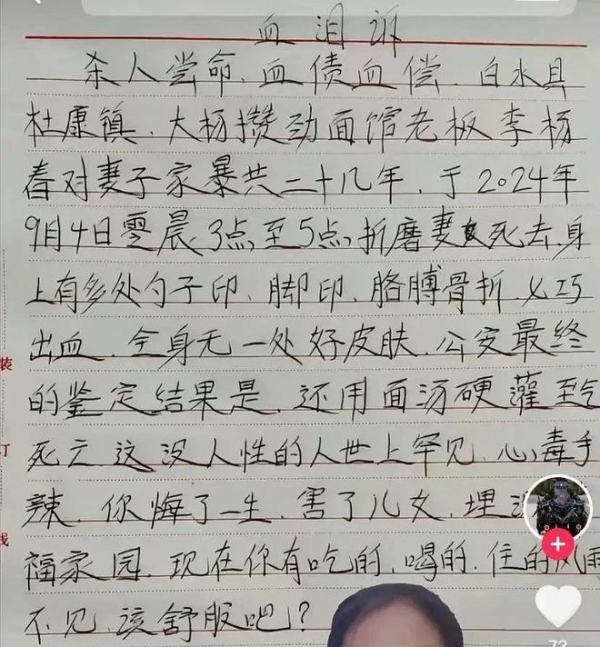 血泪诉
杀人尝命,血债血偿,白水县
杜康镇,大杨攒劲面馆老板李杨
春对妻子家暴共二十几年,于2024年
9月4日零晨3点至5点,折磨妻死去,身
上有多处勺子印、脚印、胳膊骨折、义巧
出血,全身无一处好皮肤,公安最终
的鉴定结果是,还用面汤硬灌至气
死亡,这没人性的人世上罕见,心毒手
辣,你悔了一生,害了儿女,埋
福家园,现在你有吃的,喝的,住的风雨
不见,该舒服吧?
装
订
线